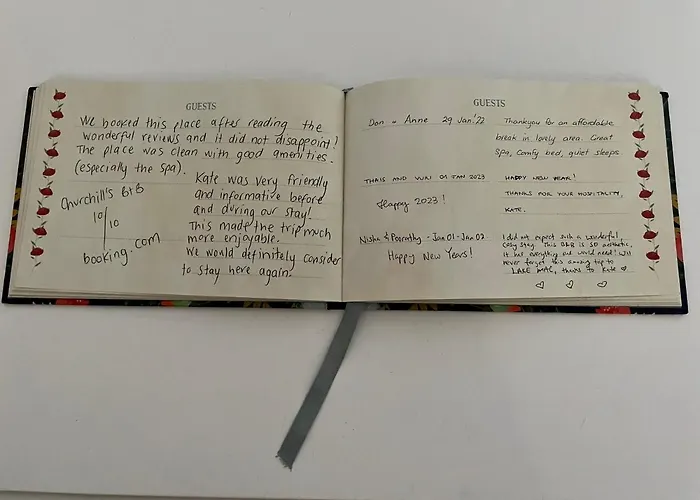 GUESTS
We booked this place after reading the
wonderful reviews and it did not disappoint!
The place was clean with good amenities.
(especially the spa).
Kate was very friendly
and informative before
and during our stay!
This made the trip much
more enjoyable.
We would definitely consider
to stay here again.
Churchill's B&B
10/10
booking.com
GUESTS
Don & Anne 29 Jan '22
Thankyou for an affordable
break in lovely area. Great
Spa, Comfy bed, quiet sleeps.
THAIS AND YURI 01 JAN 2023
Happy 2023!
HAPPY NEW YEAR!
THANKS FOR YOUR HOSPITALITY,
KATE.
Nisha & - Jan 01 - Jan 02
Happy New Years!
I did not expect such a wonderful,
cosy stay. This B&B is SO aesthetic,
it has everything one would need! Will
never forget this amazing trip to
LAKE MAC, thanks to Kate ♡
♡ ♡ ♡